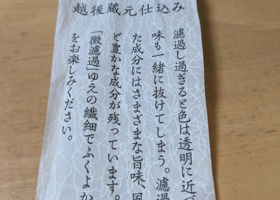 越後蔵元仕込み
濾過し過ぎると色は透明に近づ
味も一緒に抜けてしまう。濾過
た成分にはさまざまな旨味、風
ど豊かな成分が残っています。
「微濾過」ゆえの繊細でふくよか
をお楽しみください。